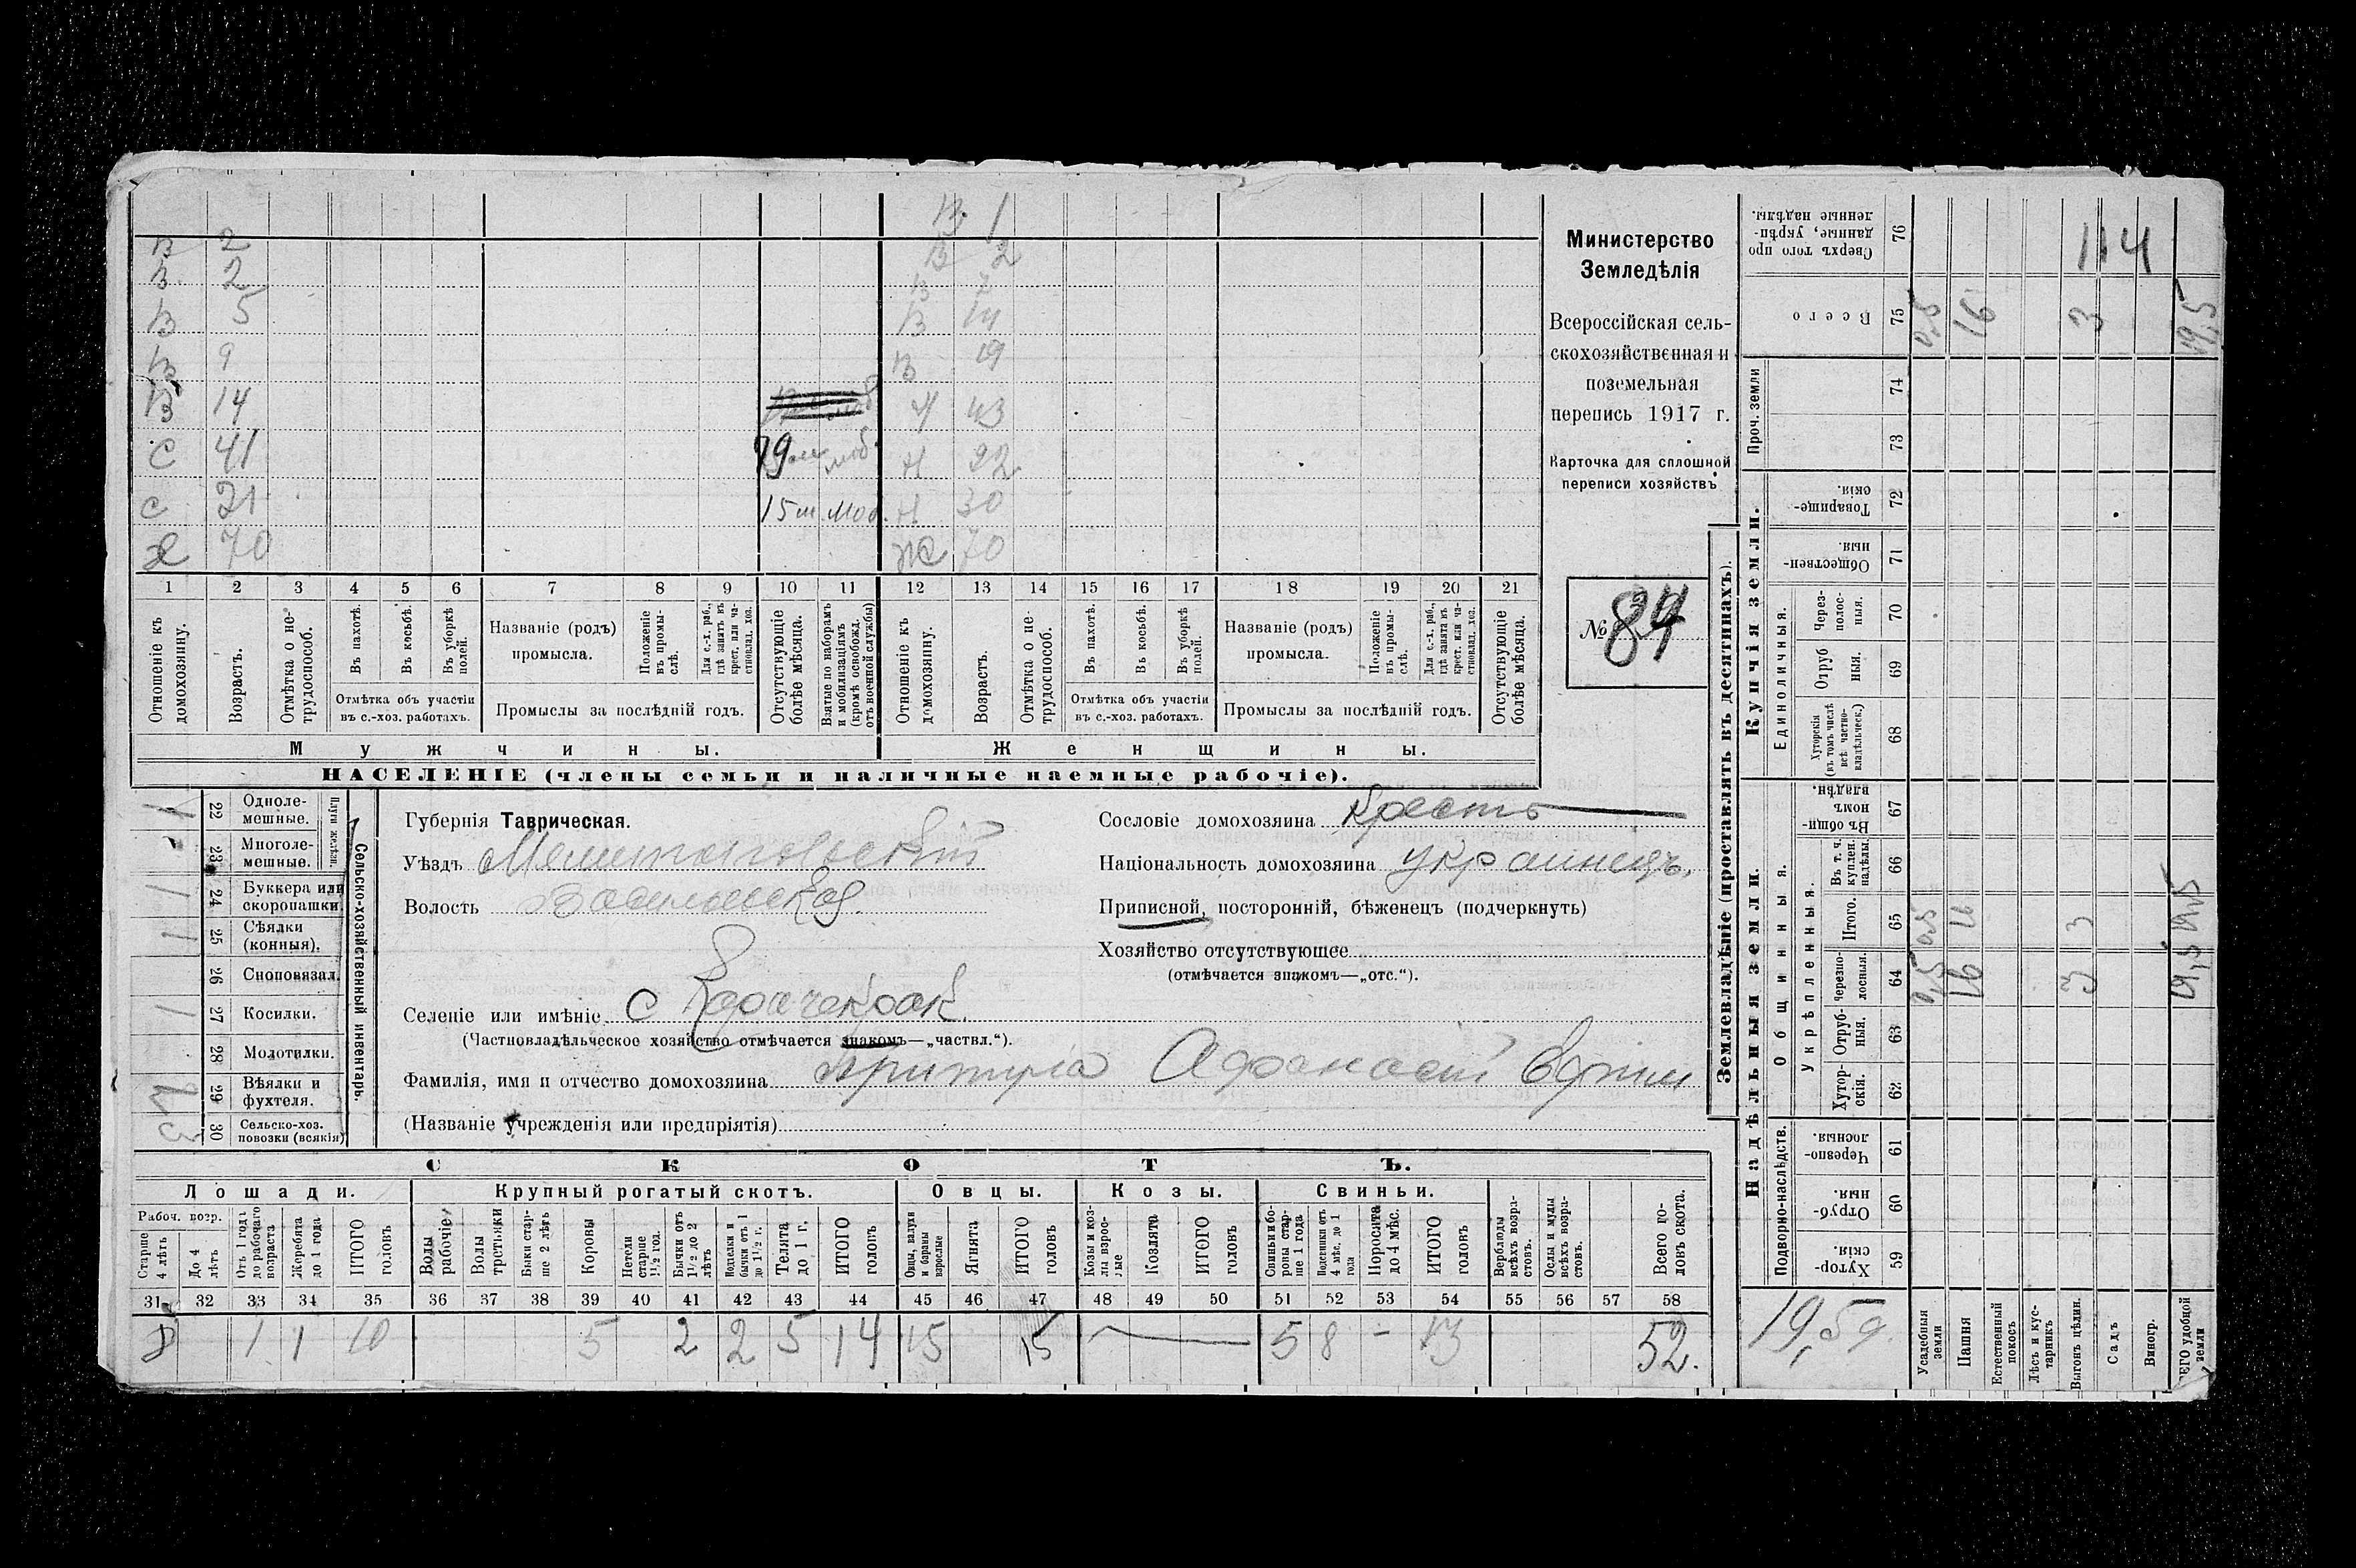 В. 1
В 2 В 2
В. 2 В 7
В 5 В 14
В 9 В 19
В 14 Н 43
С 41 19 мб. Н 22
С 21 15 м. моб. Н 30
Х 70 70
1 2 3 4 5 6 7 8 9 10 11 12 13 14 15 16 17 18 19 20 21
Отношеніе къ домохозяину.
Возрастъ.
Отмѣтка о не-трудоспособ.
Въ пахотѣ.
Въ косьбѣ.
Въ уборкѣ полей.
Отмѣтка объ участіи
въ с.-хоз. работахъ.
Названіе (родъ)
промысла.
Положеніе въ промы-слѣ.
Для с.-х. раб., гдѣ занятъ въ крест. или ча-ствовлад. хоз.
Промыслы за послѣдній годъ.
Отсутствующіе болѣе мѣсяца.
Взятые по наборамъ и мобилизаціямъ (кромѣ освобожд. отъ военной службы)
Отношеніе къ домохозяину.
Возрастъ.
Отмѣтка о не-трудоспособ.
Въ пахотѣ.
Въ косьбѣ.
Въ уборкѣ полей.
Отмѣтка объ участіи
въ с.-хоз. работахъ.
Названіе (родъ)
промысла.
Положеніе въ промы-слѣ.
Для с.-х. раб., гдѣ занята въ крест. или ча-ствовлад. хоз.
Промыслы за послѣдній годъ.
Отсутствующіе болѣе мѣсяца.
Мужчины. Женщины.
НАСЕЛЕНІЕ (члены семьи и наличные наемные рабочіе).
Министерство
Земледѣлія
Всероссійская сель-
скохозяйственная и
поземельная
перепись 1917 г.
Карточка для сплошной
переписи хозяйствъ
№ 84
Сельско-хозяйственный инвентарь.
Плуги желѣзн.
22 Одноле-
мешные.
23 Многоле-
мешные. 1
24 Буккера или
скоропашки. 1
25 Сѣялки
(конныя). 1
26 Сноповязал.
27 Косилки. 1
28 Молотилки.
29 Вѣялки и
фухтеля.
30 Сельско-хоз.
повозки (всякія) 3
Губернія Таврическая.
Уѣздъ Мелитопольскій
Волость Васильевская.
Селеніе или имѣніе с Карачекрак.
(Частновладѣльческое хозяйство отмѣчается знакомъ—„частвл.“).
Фамилія, имя и отчество домохозяина Притула Афанасій Ефим
(Названіе учрежденія или предпріятія)
Сословіе домохозяина Крестъ
Національность домохозяина украинецъ.
Приписной, посторонній, бѣженецъ (подчеркнуть)
Хозяйство отсутствующее
(отмѣчается знакомъ—„отс.“).
СКОТЪ.
Лошади. Крупный рогатый скотъ. Овцы. Козы. Свиньи.
Рабоч. возр.
Старше 4 лѣтъ
До 4 лѣтъ
Отъ 1 года до рабочаго возраста
Жеребята до 1 года
ИТОГО головъ
Волы рабочіе
Волы третьяки
Быки стар-ше 2 лѣтъ
Коровы
Нетели старше 1½ год.
Бычки отъ 1½ до 2 лѣтъ
Подтелки и бычки отъ 1 до 1½ г.
Телята до 1 г.
ИТОГО головъ
Овцы, валухи и бараны взрослые
Ягнята
ИТОГО головъ
Козы и коз-лы взрос-лые
Козлята
ИТОГО головъ
Свиньи и бо-ровы стар-ше 1 года
Подсвинки отъ 4 мѣс. до 1 года
Поросята до 4 мѣс.
ИТОГО головъ
Верблюды всѣхъ возра-стовъ.
Ослы и мулы всѣхъ возра-стовъ.
Всего го-ловъ скота.
31 32 33 34 35 36 37 38 39 40 41 42 43 44 45 46 47 48 49 50 51 52 53 54 55 56 57 58
8 1 1 10 5 2 2 5 14 15 15 5 8 – 13 52.
Землевладѣніе (проставлять въ десятинахъ).
Купчія земли.
Надѣльныя земли.
76 Сверхъ того про
данные, укрѣп-
ленные надѣлы.
114
75 Всего 0,5 16 3 19,5
Проч. земли
74
73
72 Товарище-
скія.
71 Обществен-
ныя.
Единоличныя.
70 Через-
полос-
ныя.
69 Отруб
ныя.
68 Хуторскія
(въ томъ числѣ
всѣ частно-
владѣльческ.)
Общинныя.
67 Въ общи-
номъ
владѣн.
Укрѣпленныя.
66 Въ т. ч.
куплен.
надѣлы.
65 Итого. 0,5 16 3 19,5
64 Черезпо-
лосныя. 0,5 16 3 19,5
63 Отруб-
ныя.
62 Хутор-
скія.
Подворно-наслѣдств.
61 Черезпо-
лосныя.
60 Отруб-
ныя.
59 Хутор-
скія.
19,5 д.
Усадебныя земли
Пашня
Естественный покосъ
Лѣсъ и кус-тарникъ
Выгонъ цѣлин.
Садъ
Виногр.
ВСЕГО удобной земли